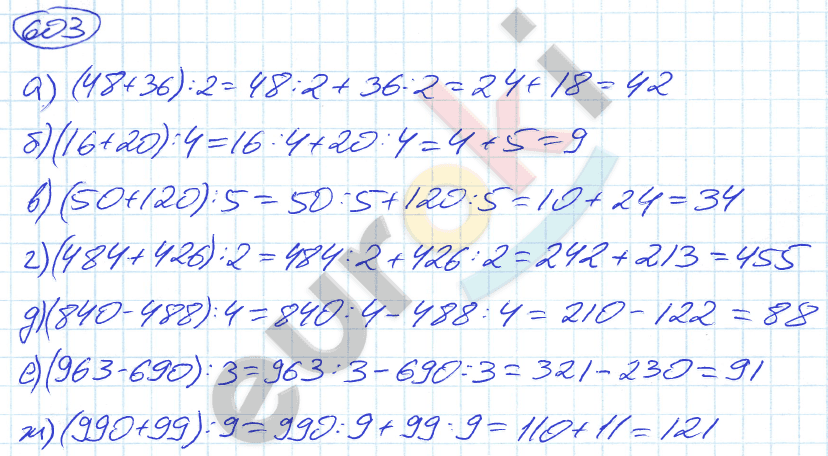 603
а) (48+36):2=48:2+36:2=24+18=42
б) (16+20):4=16:4+20:4=4+5=9
в) (50+120):5=50:5+120:5=10+24=34
г) (484+426):2=484:2+426:2=242+213=455
д) (840-488):4=840:4-488:4=210-122=88
е) (963-690):3=963:3-690:3=321-230=91
ж) (990+99):9=990:9+99:9=110+11=121
euroki